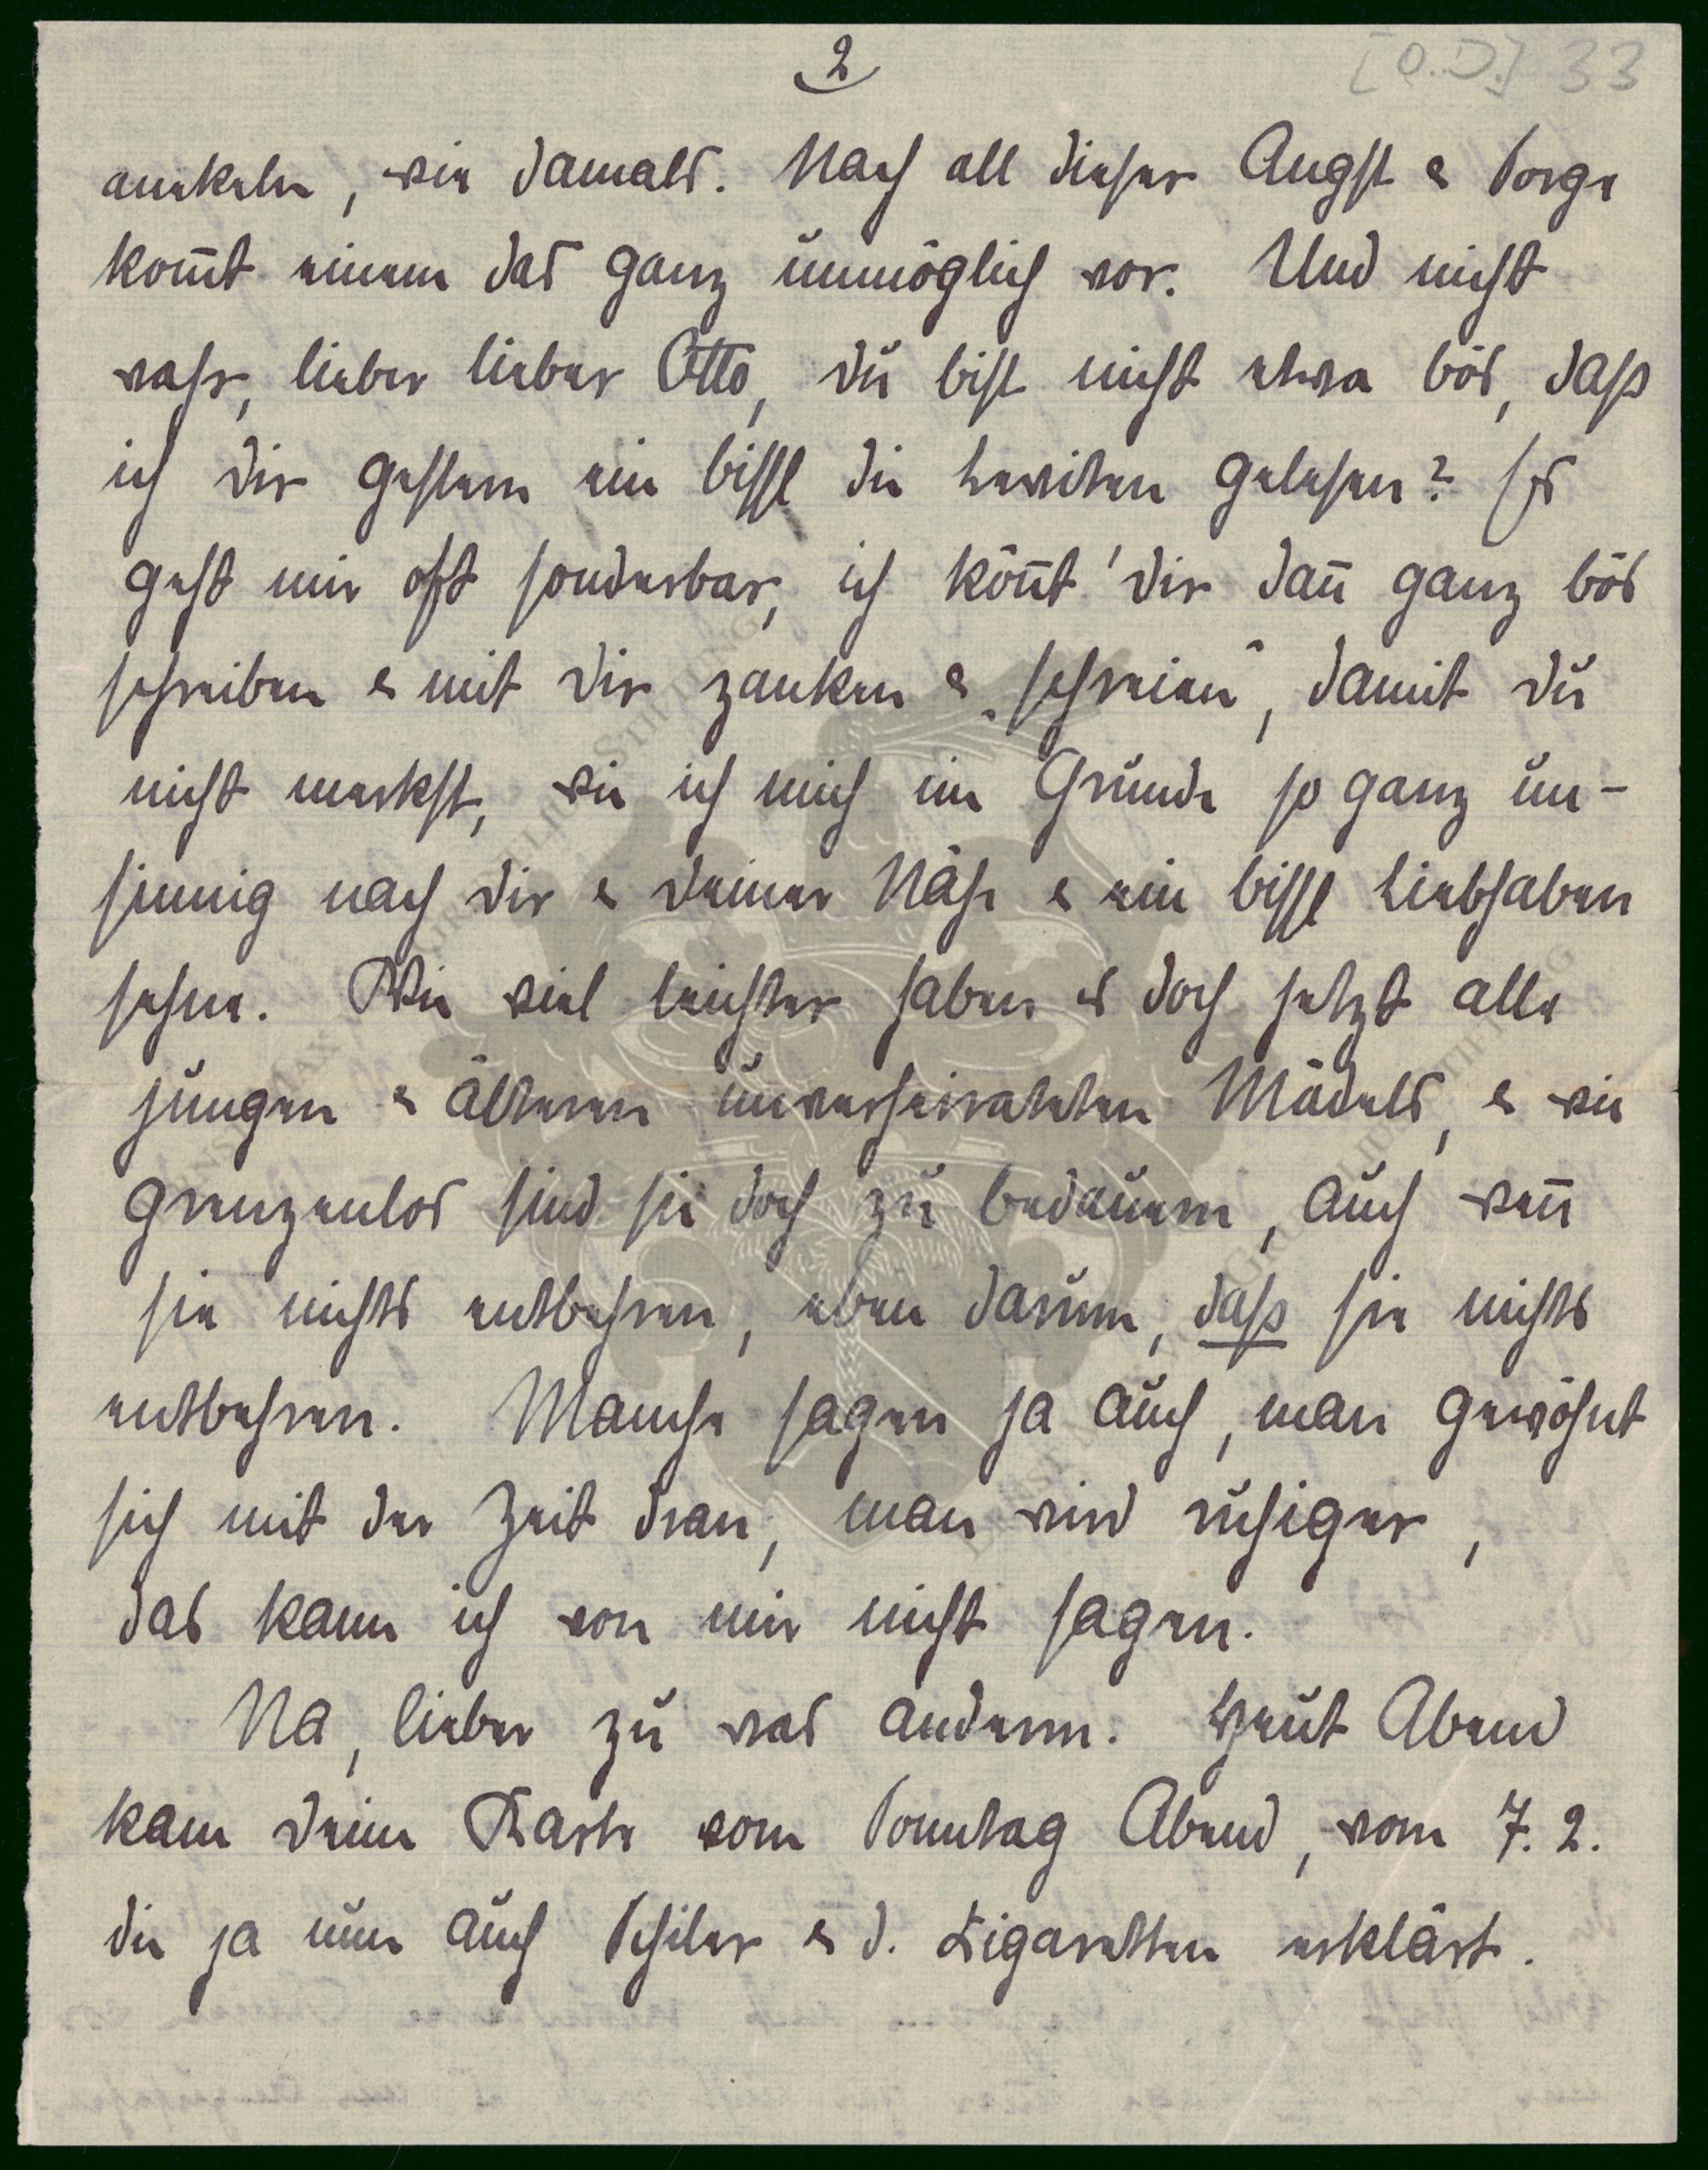 2
[O.D.] 33
anekeln, wie damals. Nach all dieser Angst & Sorge
kom̅t einem das ganz unmöglich vor. Und nicht
wahr, lieber lieber Otto, du bist nicht etwa bös, dass
ich dir gestern ein bissl die Leviten gelesen? Es
geht mir oft sonderbar, ich kön̅t' dir dan̅ ganz bös
schreiben & mit dir zanken & „schreien“, damit du
nicht merkst, wie ich mich im Grunde so ganz un-
sinnig nach dir & deiner Näh & ein bissl Liebhaben
sehne. Wie viel leichter haben es doch jetzt alle
jungen & älteren unverheirateten Mädels, & wie
grenzenlos sind sie doch zu bedauern, auch wen̅
sie nichts entbehren, eben darum, dass sie nichts
entbehren. Manche sagen ja auch, man gewöhnt
sich mit der Zeit dran, man wird ruhiger,
das kann ich von mir nicht sagen.
Na, lieber zu was anderm. Heut Abend
kam deine Karte vom Sonntag Abend, vom 7. 2.
die ja nun auch Schiler & d. Zigaretten erklärt.